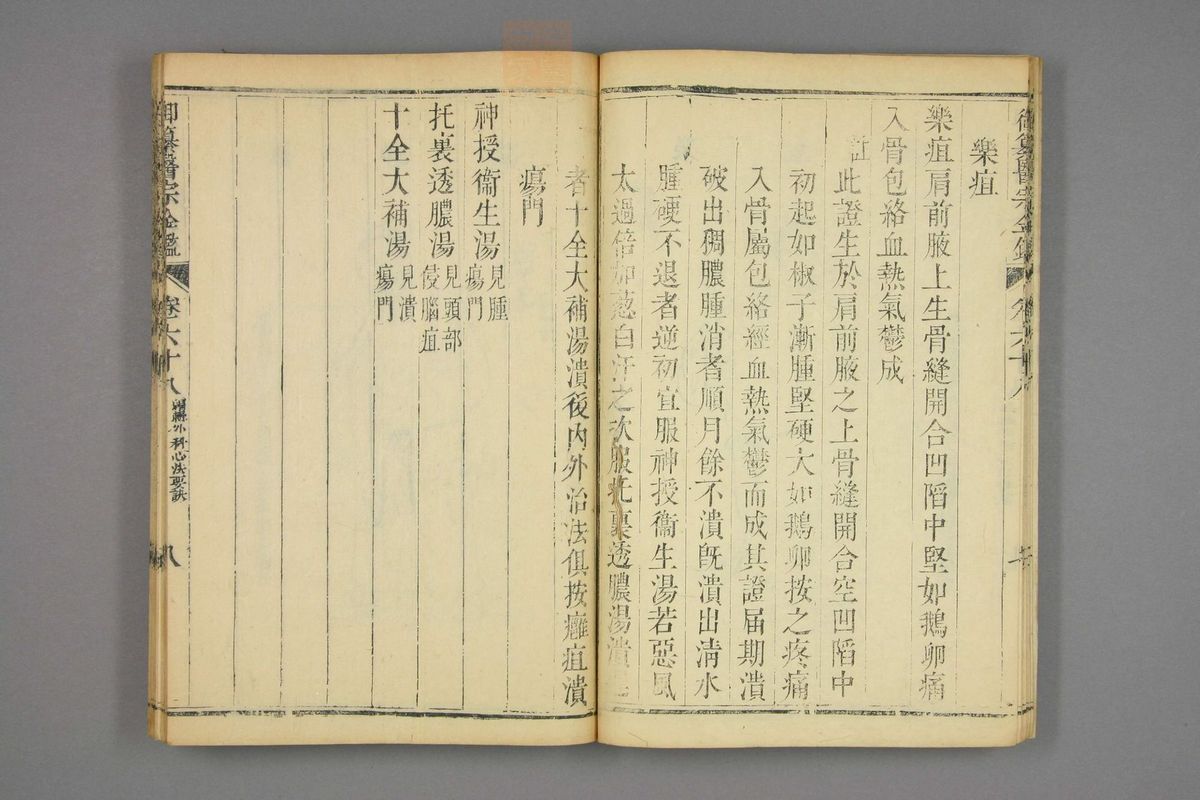 御纂醫宗金鑑 卷六十八
樂疽
樂疽肩前腋上生骨縫開合凹陷中堅如鵝卵痛
入骨包絡血熱氣鬱成
註
此證生於肩前腋之上骨縫開合空凹陷中
初起如椒子漸腫堅硬大如鵝卵按之疼痛
入骨屬包絡經血熱氣鬱而成其證届期潰
破出稠膿腫消者順月餘不潰既潰出清水
腫硬不退者逆初宜服神授衞生湯若惡風
太過倍加葱白汗之次服托裏透膿湯潰
者十全大補湯潰後內外治法俱按癰疽潰
瘍門
神授衞生湯 見腫瘍門
托裏透膿湯 見頭部侵腦疽
十全大補湯 見潰瘍門
御纂醫宗金鑑 卷六十八 編輯外科心法要訣 八